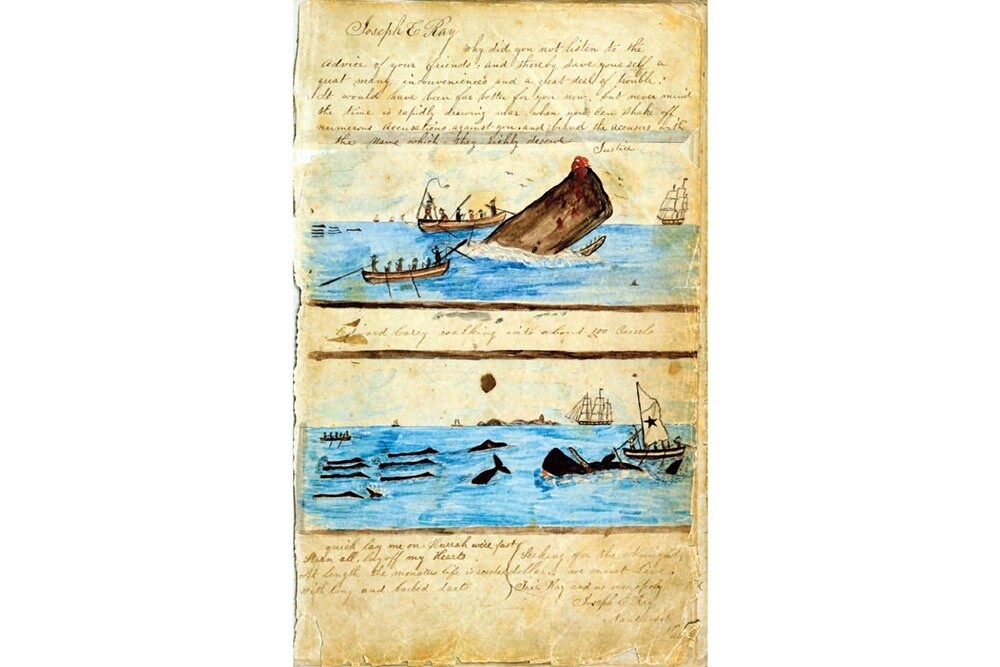 Joseph E Ray
Why did you not listen to the
advice of your friends; and thereby save yourself a
great many inconveniences and a great deal of trouble;
It would have been far better for you now, but never mind
the time is rapidly drawing near when you can shake off
numerous accusations against you and brand the accusers with
the name which they richly deserve
Justice
Edward Carey walking into about 100 Barrels
quick lay me on Hurrah we're fast
Starn all, lay off my Hearts
At length the monsters life is
with long and barbed
Seeking for the Almighty
dollars we must
Fair Play and no
Joseph E Ray
Nantucket